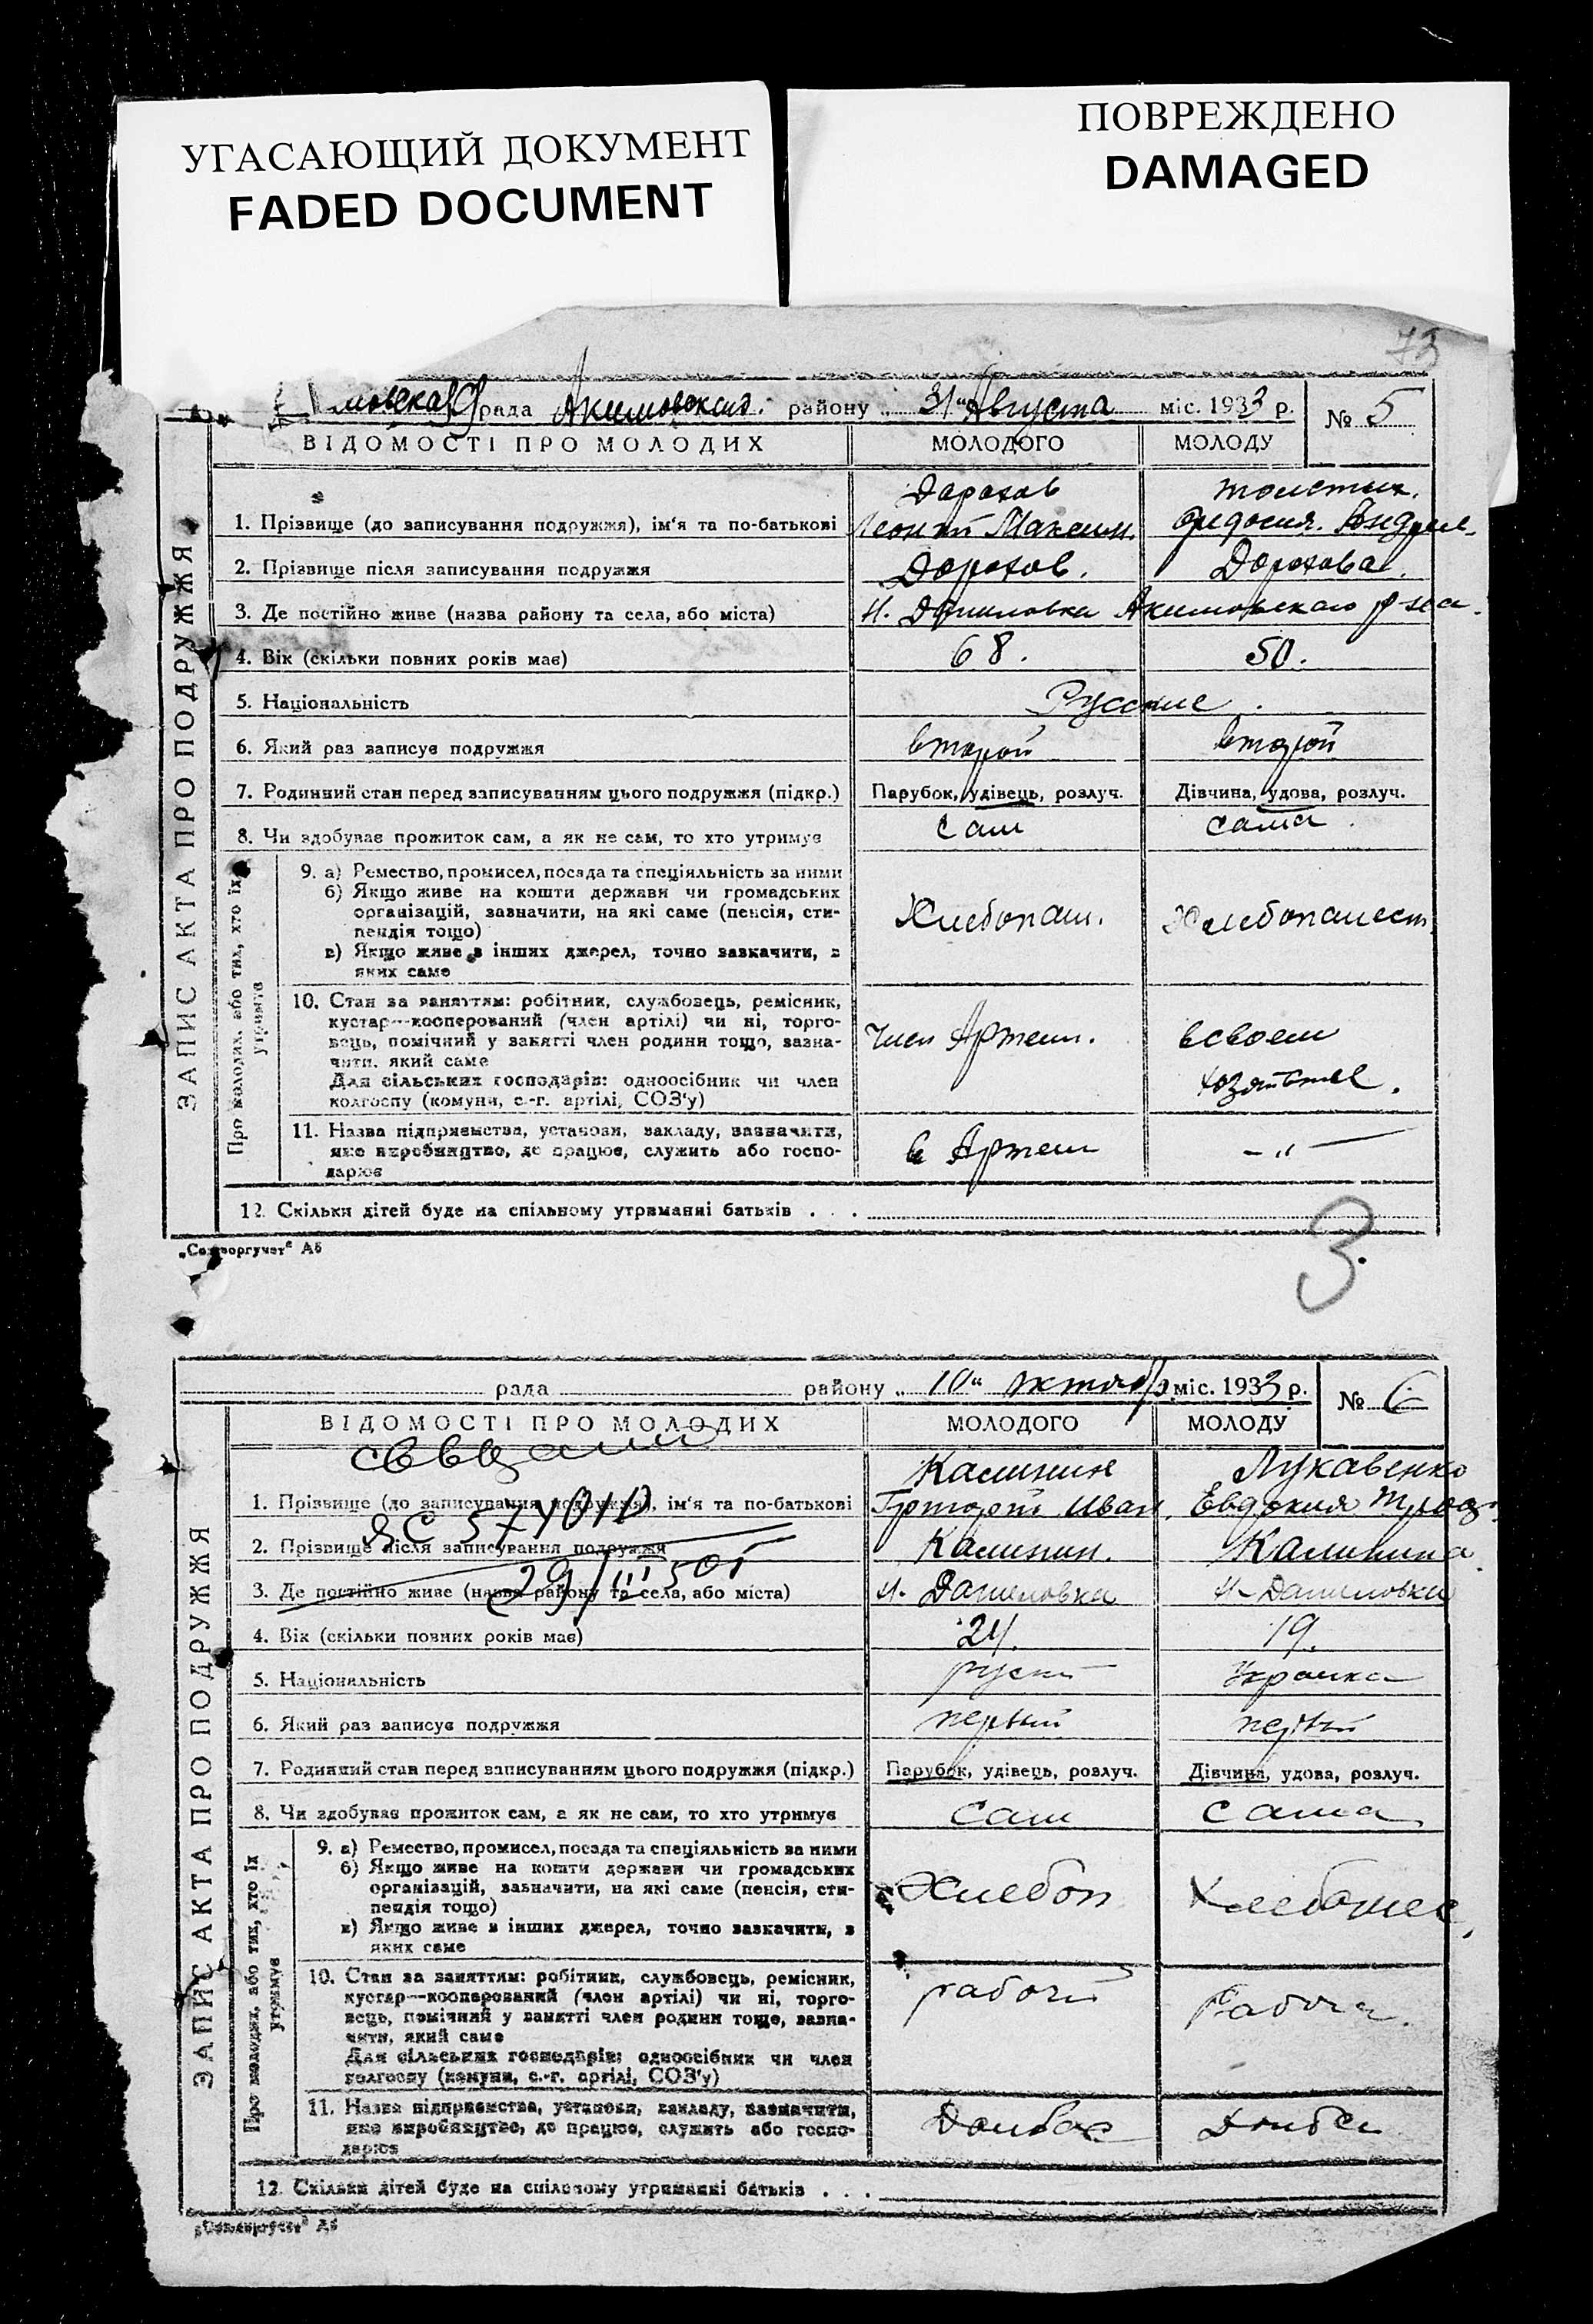 УГАСАЮЩИЙ ДОКУМЕНТ
FADED DOCUMENT
ПОВРЕЖДЕНО
DAMAGED
73
рада Акимовского району „31“ Августа міс. 1933 р. № 5
ВІДОМОСТІ ПРО МОЛОДИХ МОЛОДОГО МОЛОДУ
ЗАПИС АКТА ПРО ПОДРУЖЖЯ
Дорохов Толстых.
1. Прізвище (до записування подружжя), ім'я та по-батькові Леонтий Максим. Федосия. Андрее.
2. Прізвище після записування подружжя Дорохов. Дорохова.
3. Де постійно живе (назва району та села, або міста) Н. Даниловка Акимовского р-на.
4. Вік (скільки повних років має) 68. 50.
5. Національність Русские.
6. Який раз записує подружжя второй второй
7. Родинний стан перед записуванням цього подружжя (підкр.) Парубок, удівець, розлуч. Дівчина, удова, розлуч.
8. Чи здобуває прожиток сам, а як не сам, то хто утримує сам сама.
Про молодих, або тих, хто їх утримує
9. а) Ремество, промисел, посада та спеціяльність за ними
б) Якщо живе на кошти держави чи громадських
організацій, зазначити, на які саме (пенсія, сти-
пендія тощо) Хлебопаш. Хлебопашест.
в) Якщо живе з інших джерел, точно зазначити, з
яких саме
10. Стан за заняттям: робітник, службовець, ремісник,
кустар—кооперований (член артілі) чи ні, торго-
вець, помічний у занятті член родини тощо, зазна- Член Артели. в своем
чити, який саме
Для сільських господарів: одноосібник чи член хозяйстве.
колгоспу (комуни, с.-г. артілі, СОЗ'у)
11. Назва підприємства, установи, закладу, зазначити,
яке виробництво, де працює, служить або госпо- в Артели — „ —
дарює
12. Скільки дітей буде на спільному утриманні батьків . . .
3.
рада району „10“ октября міс. 1933 р. № 6
ВІДОМОСТІ ПРО МОЛОДИХ МОЛОДОГО МОЛОДУ
ЗАПИС АКТА ПРО ПОДРУЖЖЯ
Калинин Лукавенко
1. Прізвище (до записування подружжя), ім'я та по-батькові Григорий Иван. Евдокия
2. Прізвище після записування подружжя Калинин. Калинина
29/III 50г
3. Де постійно живе (назва району та села, або міста) Н. Даниловка Н-Даниловка
4. Вік (скільки повних років має) 24. 19.
5. Національність руский Украинка
6. Який раз записує подружжя первый первый
7. Родинний стан перед записуванням цього подружжя (підкр.) Парубок, удівець, розлуч. Дівчина, удова, розлуч.
8. Чи здобуває прожиток сам, а як не сам, то хто утримує сам сама
Про молодих, або тих, хто їх утримує
9. а) Ремество, промисел, посада та спеціяльність за ними
б) Якщо живе на кошти держави чи громадських
організацій, зазначити, на які саме (пенсія, сти- Хлебоп
пендія тощо)
в) Якщо живе з інших джерел, точно зазначити, з
яких саме
10. Стан за заняттям: робітник, службовець, ремісник,
кустар—кооперований (член артілі) чи ні, торго- рабочий
вець, помічний у занятті член родини тощо, зазна-
чити, який саме
Для сільських господарів: одноосібник чи член
колгоспу (комуни, с.-г. артілі, СОЗ'у)
11. Назва підприємства, установи, закладу, зазначити,
яке виробництво, де працює, служить або госпо- Донбас
дарює
12. Скільки дітей буде на спільному утриманні батьків . . .